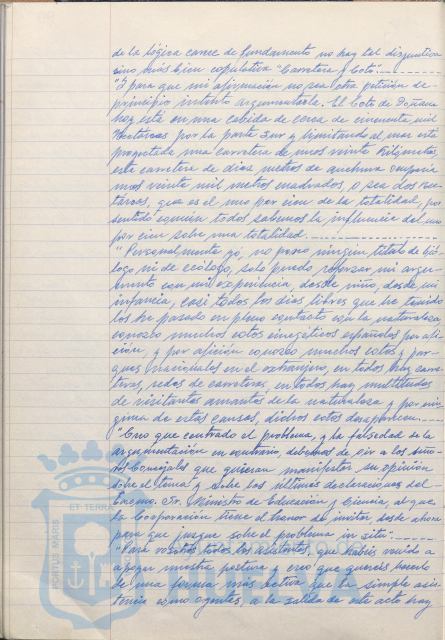 de la lógica carece de fundamento no hay tal disyuntiva
sino más bien copulativa "Carretera y Coto".
"Y para que mi afirmación no sea otra petición de
principio intento argumentarla. El Coto de Doñana
hoy está en una cabida de cerca de cincuenta mil
Hectáreas por la parte Sur y limitando al mar está
proyectada una carretera de unos veinte kilómetros
esta carretera de diez metros de anchura ocuparía
unos veinte mil metros cuadrados, o sea dos Hec-
táreas, que es el uno por cien de la totalidad, por
sentido común todos sabemos la influencia del uno
por cien sobre una totalidad.
"Personalmente yo, no poseo ningún título de bió-
logo ni de ecólogo, solo puedo reforzar mi argu-
mento con mi experiencia, desde niño, desde mi
infancia, casi todos los días libres que he tenido
los he pasado en pleno contacto con la naturaleza
conozco muchos cotos cinegéticos españoles por afi-
ción, y por afición conozco muchos cotos y par-
ques nacionales en el extranjero, en todos hay carre-
teras, redes de carreteras, en todos hay multitudes
de visitantes amantes de la naturaleza y por nin-
guna de estas causas, dichos cotos desaparecen.
"Creo que centrado el problema, y la falsedad de la
argumentación en contrario, debemos de oir a los seño-
res Concejales que quieran manifestar su opinión
sobre el tema y sobre las últimas declaraciones del
Excmo. Sr. Ministro de Educación y Ciencia, al que
la Corporación tiene el honor de invitar desde ahora
para que juzgue sobre el problema in situ.
"Para vosotros todos los asistentes, que habéis venido a
apoyar nuestra postura y creo que queréis hacerlo
de una forma más activa que la simple asis-
tencia como oyentes, a la salida de este acto hay
PORTUS MARIS
ET TERRAE
HUELVA